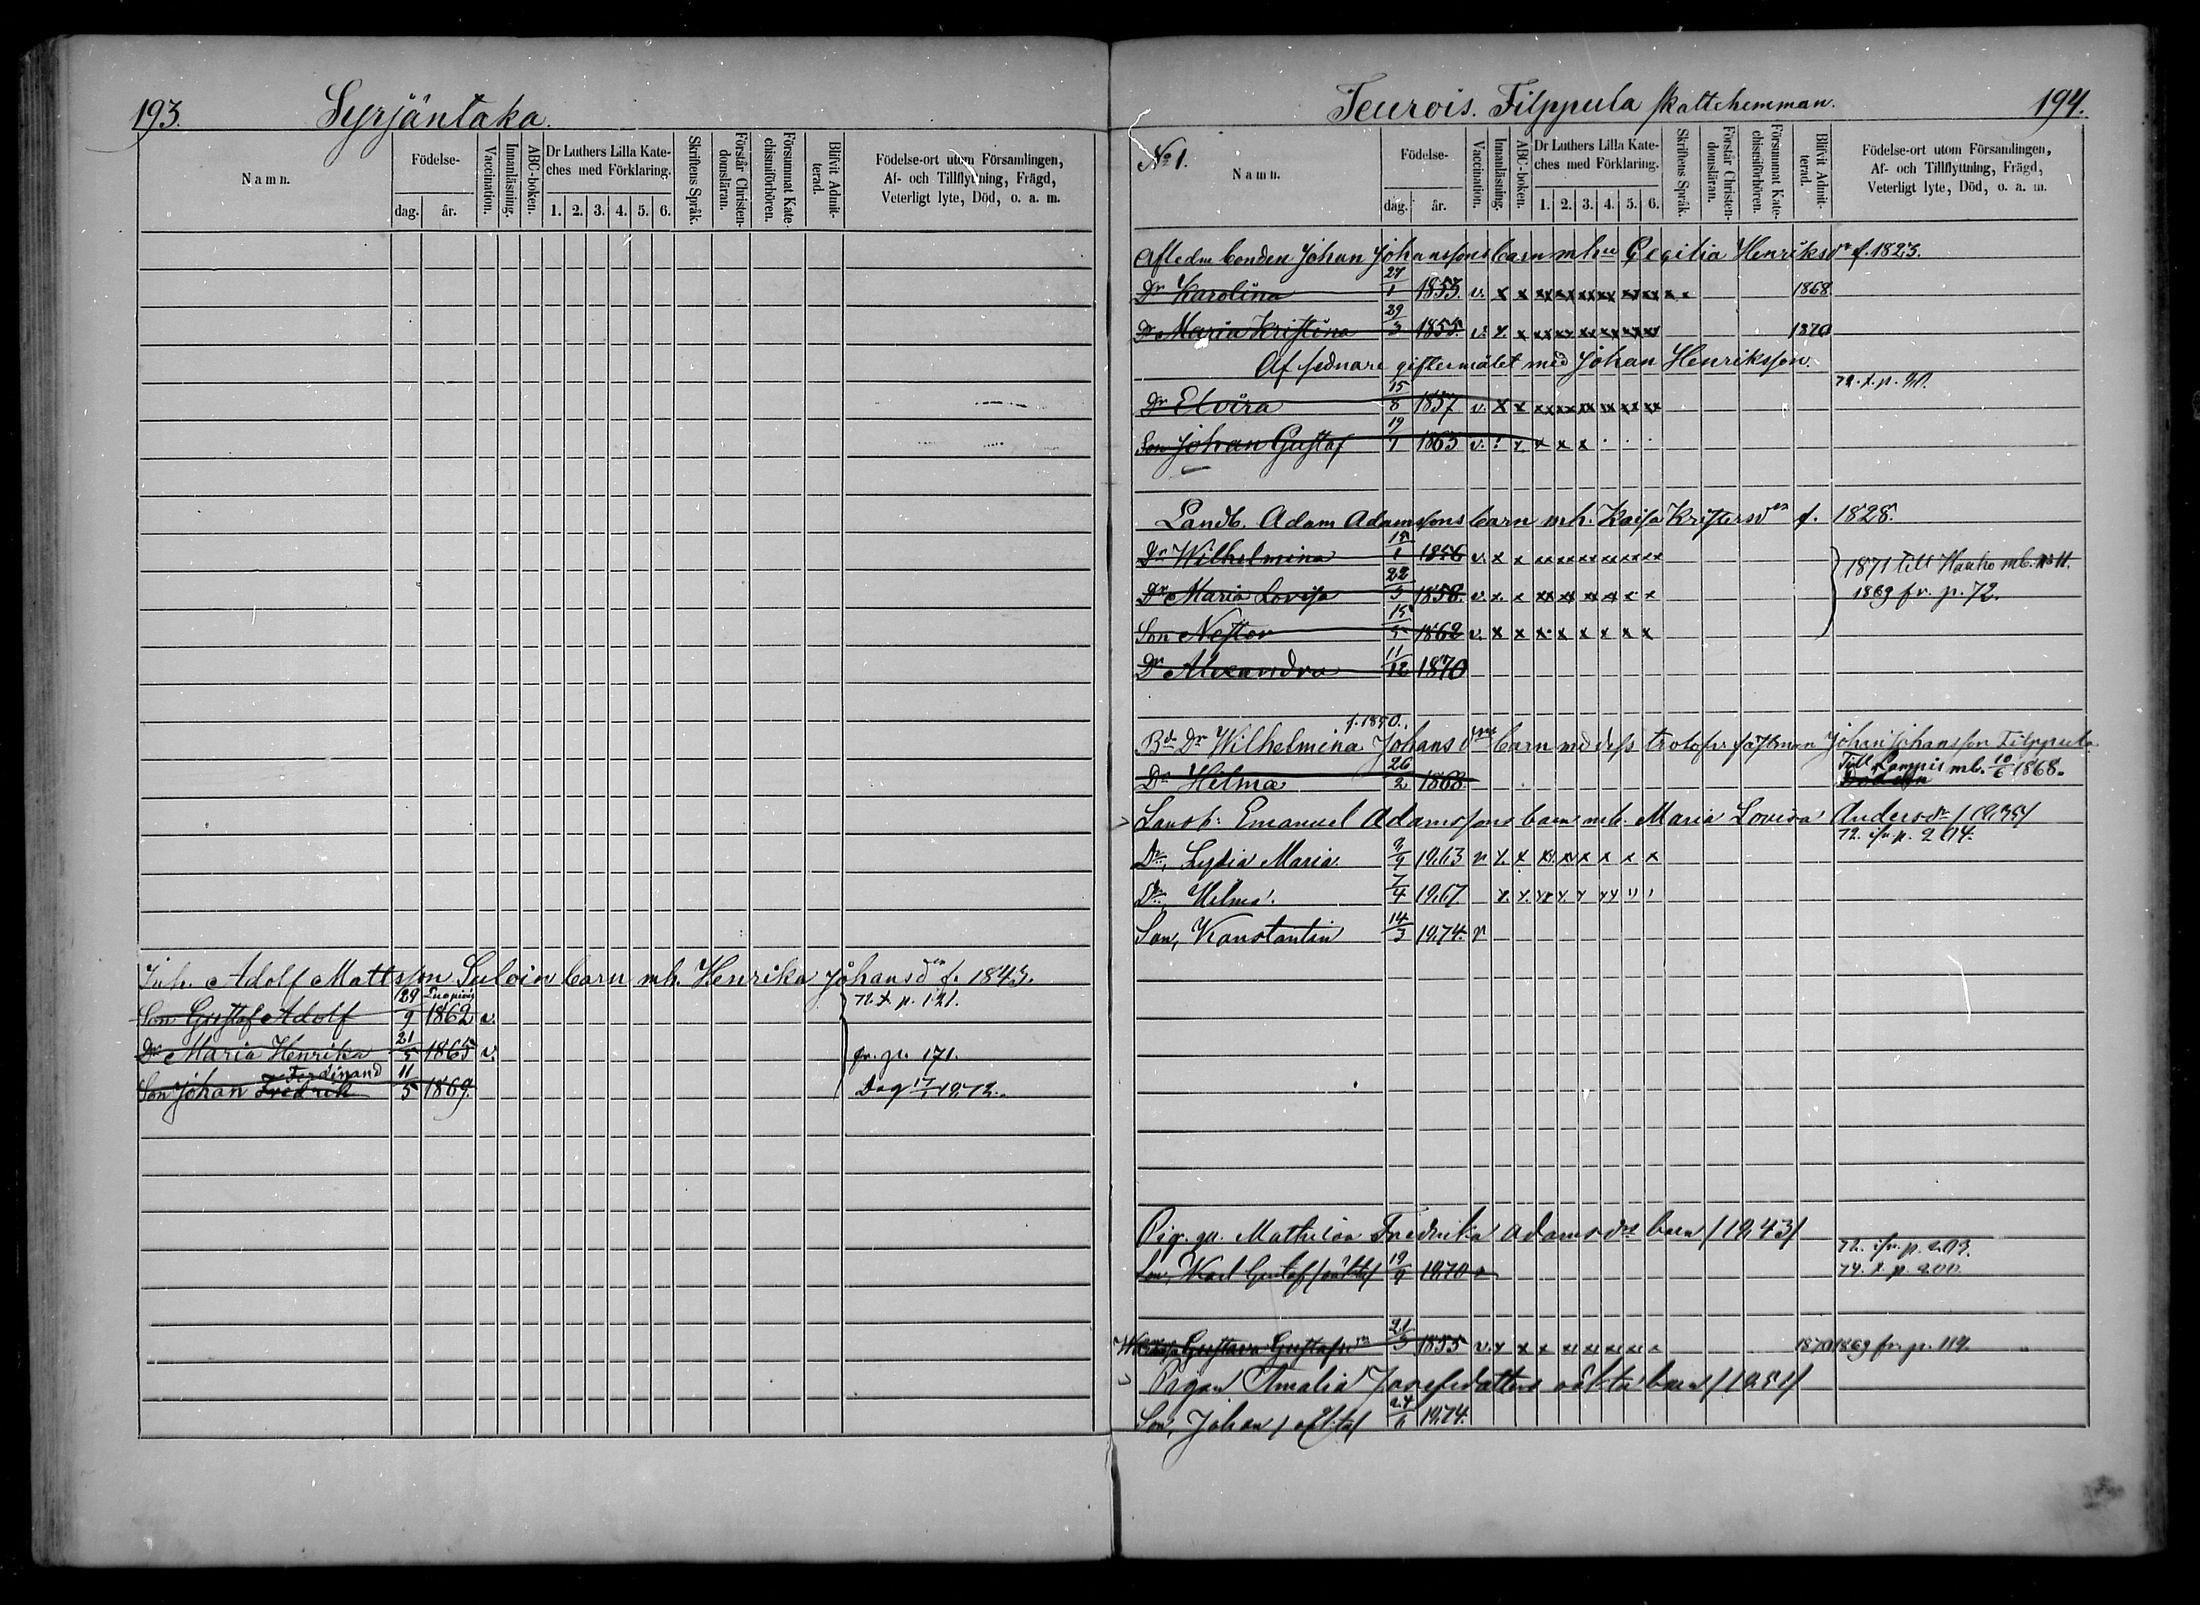 193. Syrjäntaka.
Namn.
Födelse-
dag. år.
Vaccination.
Innanläsning.
ABC-boken.
Dr Luthers Lilla Kate-
ches med Förklaring.
1. 2. 3. 4. 5. 6.
Skriftens Språk.
Förstår Christen-
domsläran.
Försummat Kate-
chismiförhören.
Blifvit Admit-
terad.
Födelse-ort utom Församlingen,
Af- och Tillflyttning, Frägd,
Veterligt lyte, Död, o. a. m.
Inh. Adolf Mattsson Suloin barn mh. Henrika Johansdn f. 1843.
Son Gustaf Adolf 29/9 1862 v. 72. t. p. 121.
Dr Maria Henrika 21/5 1865 v. fr. p. 171.
Ferdinand
Son Johan Fredrik 11/5 1869.
Teurois. Filppula skattehemman. 194.
No 1.
Namn.
Födelse-
dag. år.
Vaccination.
Innanläsning.
ABC-boken.
Dr Luthers Lilla Kate-
ches med Förklaring.
1. 2. 3. 4. 5. 6.
Skriftens Språk.
Förstår Christen-
domsläran.
Försummat Kate-
chismiförhören.
Blifvit Admit-
terad.
Födelse-ort utom Församlingen,
Af- och Tillflyttning, Frägd,
Veterligt lyte, Död, o. a. m.
Afledne bonden Johan Johanssons barn mhu Cecilia Henriksdr f. 1823.
Dr Karolina 27/1 1853. v. x x xx xx xx xx xx xx x x 1868
Dr Maria Kristina 29/3 1855. v. x x xx xx xx xx xx xx 1870
Af sednare giftermålet med Johan Henriksson.
Dr Elvira 15/8 1857 v. x x xx xx xx xx xx xx
Son Johan Gustaf 19/1 1863 v. x x x x
Landb. Adam Adamssons barn mh. Kaisa Kristersdn f. 1828.
Dr Wilhelmina 15/1 1856 v. x x xx xx xx xx xx xx 1871 till Hauho mb. No 11.
Dr Maria Lovisa 22/3 1858. v. x x xx xx xx xx x x 1869 fr. p. 72.
Son Nestor 15/5 1862 v. x x x x x x x x
Dr Alexandra 11/12 1870
f. 1850.
Bde Dr Wilhelmina Johansdrs barn med dess trolofv. fästman Johan Johansson Filppula
Dr Hilma 26/2 1868. Till Lampis mb. 10/6 1868.
Landb: Emanuel Adamssons barn mh. Maria Lovisa Andersdr
Dr, Lydia Maria 1863 v x x xx xx x x x x
Dr, Hilma 7/4 1867.
Son, Konstantin 14/3 1874. v
Pig. qu. Mathilda Fredrika Adamsdrs barn /1843/
Son, Karl Gustaf /oäkta/ 1870 v
Gustava Gustafsdr 21/3 1855 v. x x x xx xx xx xx x 1870 1869 fr. p. 119.
Pigan Amalia Josefsdotters oäkta barn
Son, Johan /oäkta/ 1874.